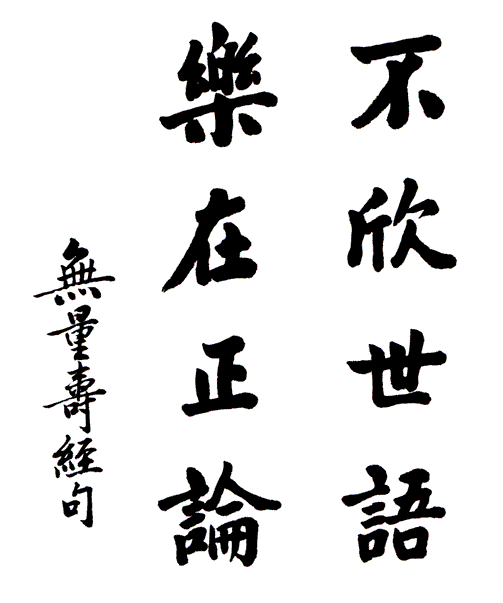 不欣世語
樂在正論
無量壽経句